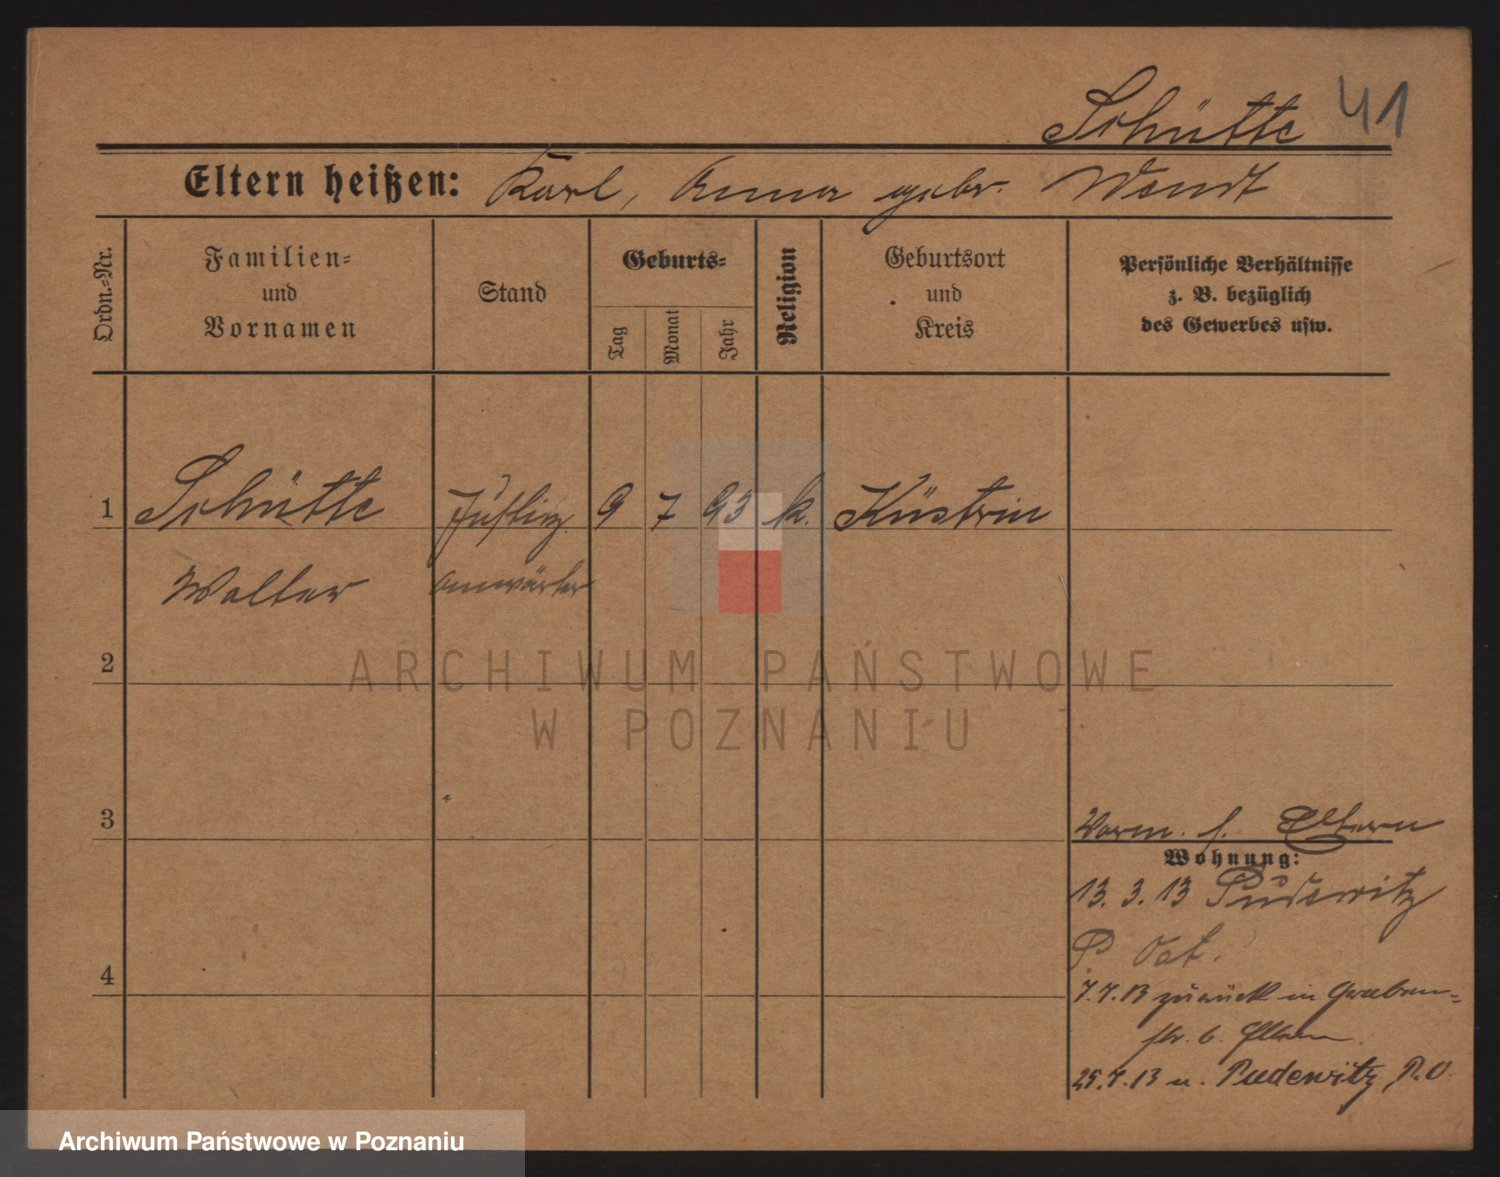 Schütte 41
Eltern heißen: Karl, Anna gebr. Wendt
Ordn.-Nr.
Familien-
und
Vornamen
Stand
Geburts-
Tag
Monat
Jahr
Religion
Geburtsort
und
Kreis
Persönliche Verhältnisse
z. B. bezüglich
des Gewerbes usw.
1 Schütte Justiz 9 7 93 k. Küstrin
Walter anwärter
2
ARCHIWUM PAŃSTWOWE
W POZNANIU
3
Vorm. s. Eltern
Wohnung:
13. 3. 13 Pudewitz
P. Ost.
4
7.7.13 zurück in Graben-
str. b. Eltern
25.7.13 n. Pudewitz, P.O.
Archiwum Państwowe w Poznaniu